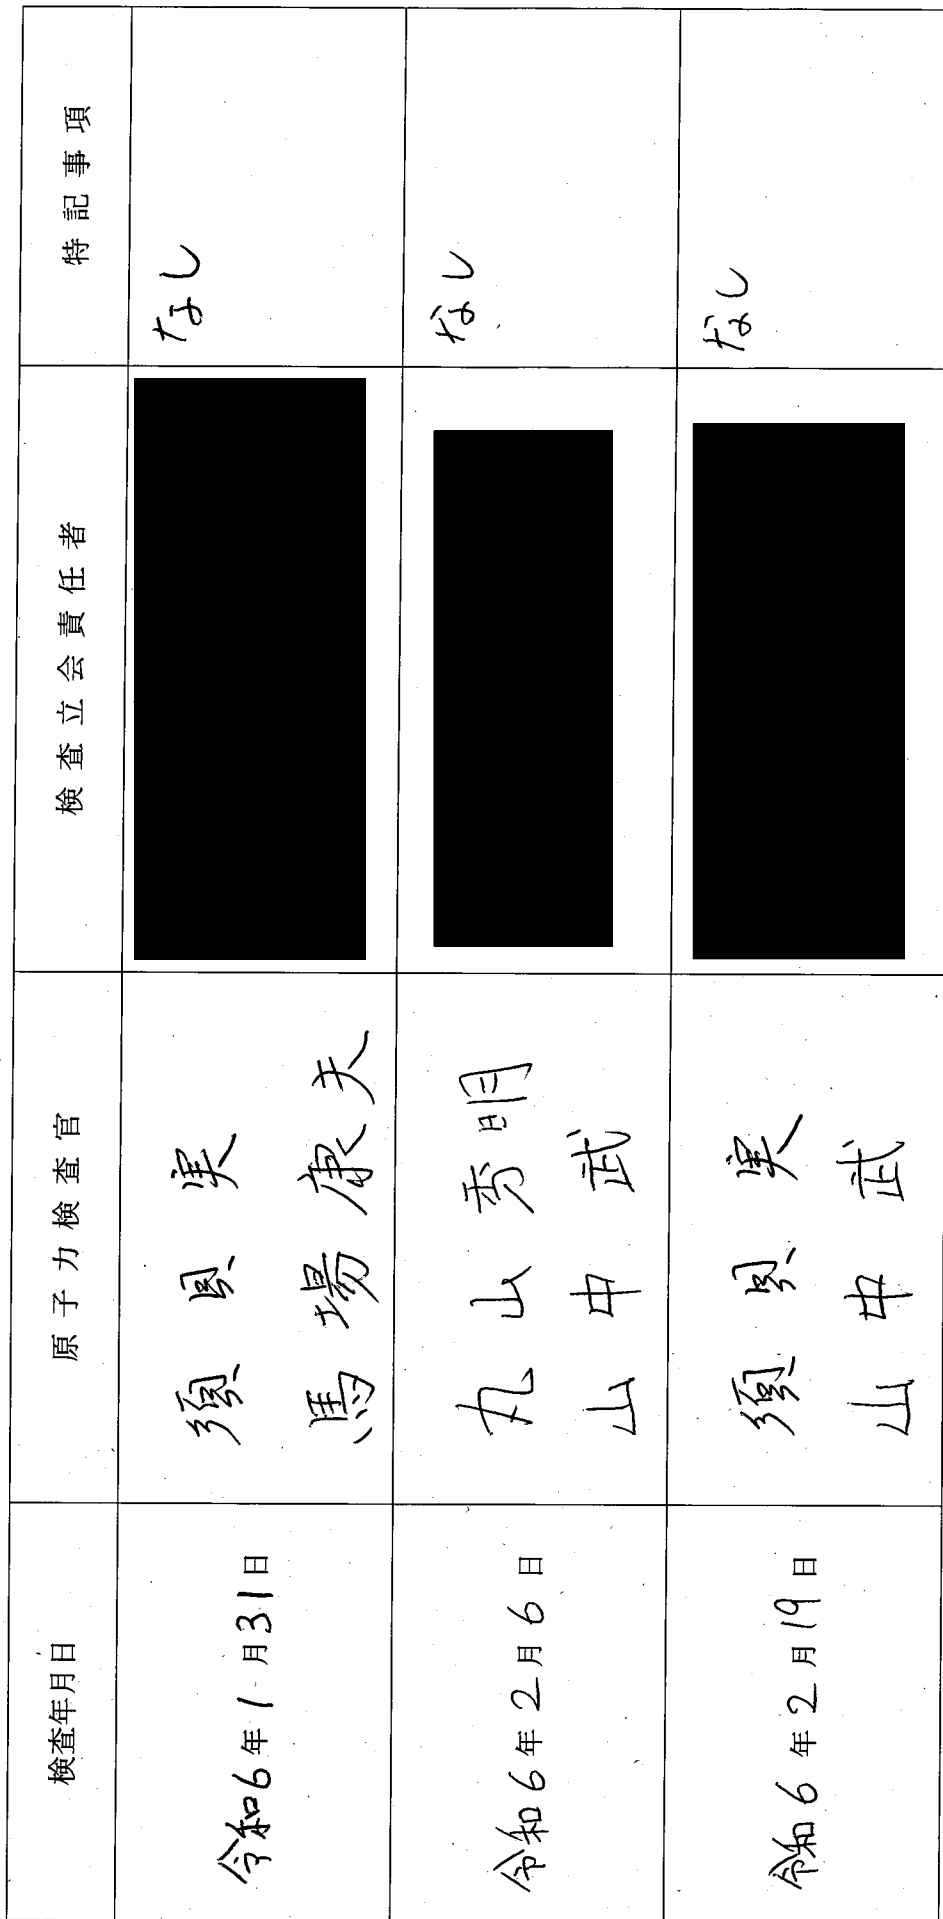 検査年月日 原子力検査官 検査立会責任者 特記事項
令和6年1月31日 須貝 実 なし
馬場康夫
令和6年2月6日 丸山秀明 なし
山中 武
令和6年2月19日 須貝 実 なし
山中 武